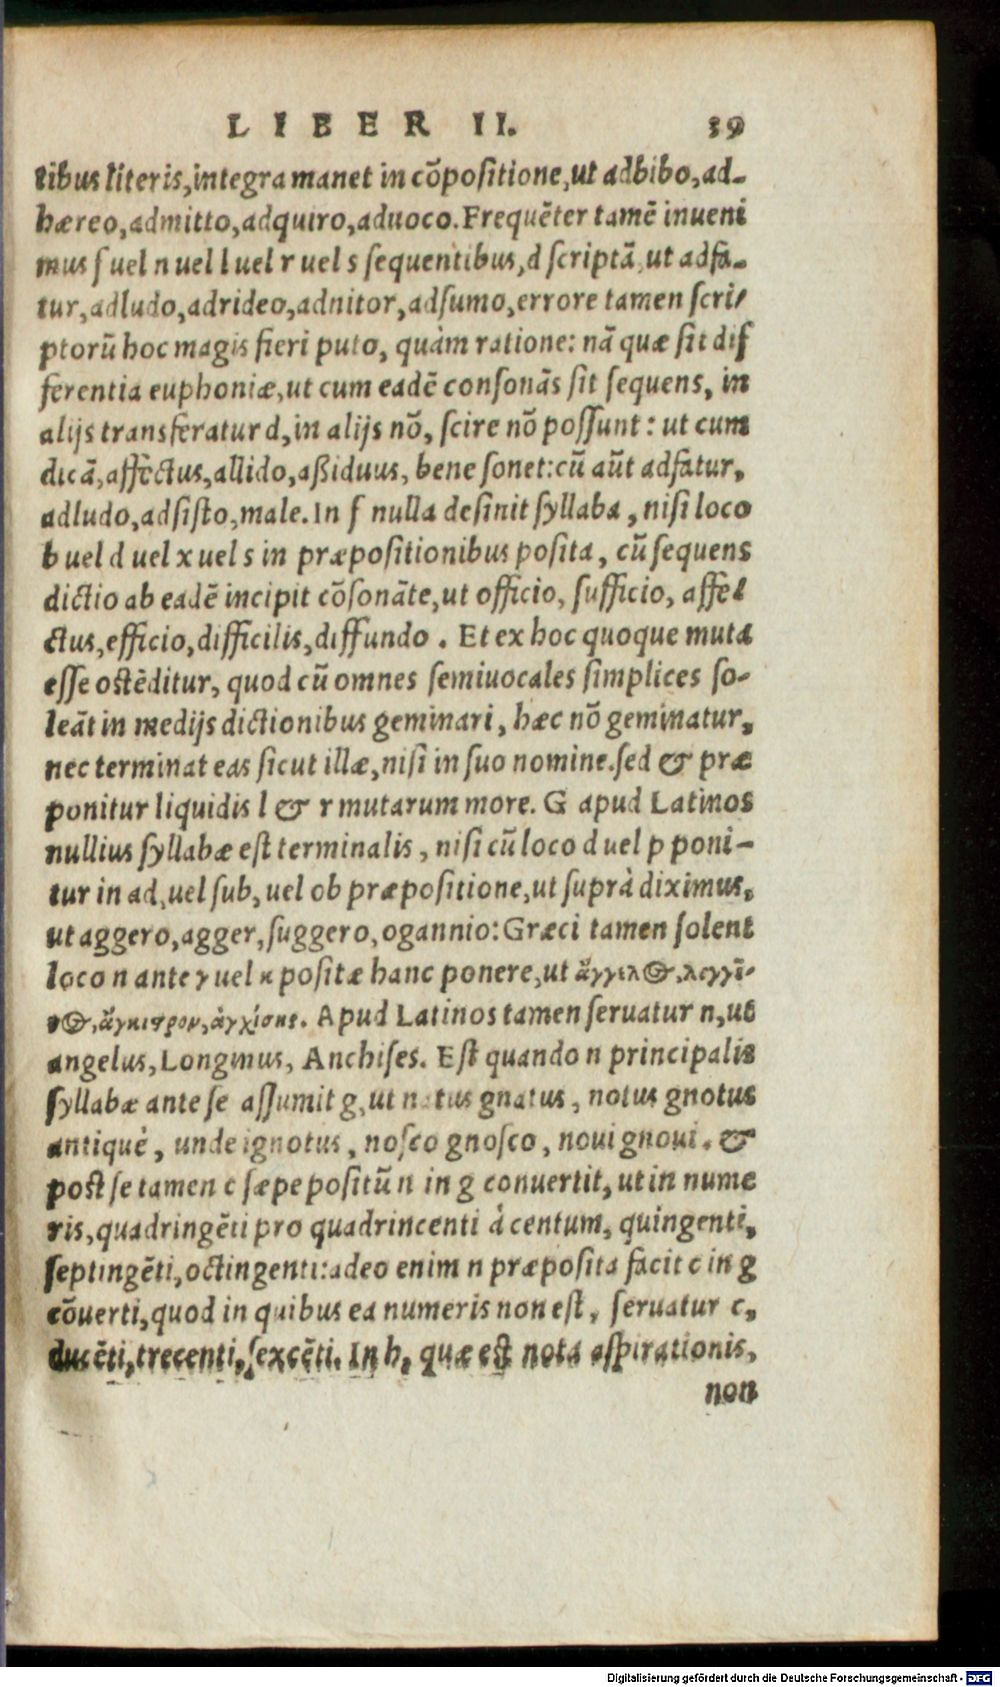 LIBER II. 39
tibus literis, integra manet in cōpositione, ut adbibo, ad-
hæreo, admitto, adquiro, aduoco. Frequēter tamē inueni
mus f uel n uel l uel r uel s sequentibus, d scriptā, ut adfa-
tur, adludo, adrideo, adnitor, adsumo, errore tamen scri-
ptorū hoc magis fieri puto, quàm ratione: nā quæ sit dif
ferentia euphoniæ, ut cum eadē consonās sit sequens, in
alijs transferatur d, in alijs nō, scire nō possunt: ut cum
dicā, affectus, allido, aßiduus, bene sonet: cū aūt adfatur,
adludo, adsisto, male. In f nulla desinit syllaba, nisi loco
b uel d uel x uel s in præpositionibus posita, cū sequens
dictio ab eadē incipit cōsonāte, ut officio, sufficio, affe-
ctus, efficio, difficilis, diffundo. Et ex hoc quoque muta
esse ostēditur, quod cū omnes semiuocales simplices so-
leāt in medijs dictionibus geminari, hæc nō geminatur,
nec terminat eas sicut illæ, nisi in suo nomine. sed & præ
ponitur liquidis l & r mutarum more. G apud Latinos
nullius syllabæ est terminalis, nisi cū loco d uel p poni-
tur in ad, uel sub, uel ob præpositione, ut suprà diximus,
ut aggero, agger, suggero, ogannio: Græci tamen solent
loco n ante γ uel κ positæ hanc ponere, ut ἄγγελος, λογγῖ-
νος, ἄγκιστρον, ἀγχίσης. Apud Latinos tamen seruatur n, ut
angelus, Longinus, Anchises. Est quando n principalis
syllabæ ante se assumit g, ut natus gnatus, notus gnotus
antiquè, unde ignotus, nosco gnosco, noui gnoui. &
post se tamen c sæpe positū n in g conuertit, ut in nume
ris, quadringēti pro quadrincenti à centum, quingenti,
septingēti, octingenti: adeo enim n præposita facit c in g
cōuerti, quod in quibus ea numeris non est, seruatur c,
ducēti, trecenti, sexcēti. In h, quæ est nota aspirationis,
non
Digitalisierung gefördert durch die Deutsche Forschungsgemeinschaft - DFG